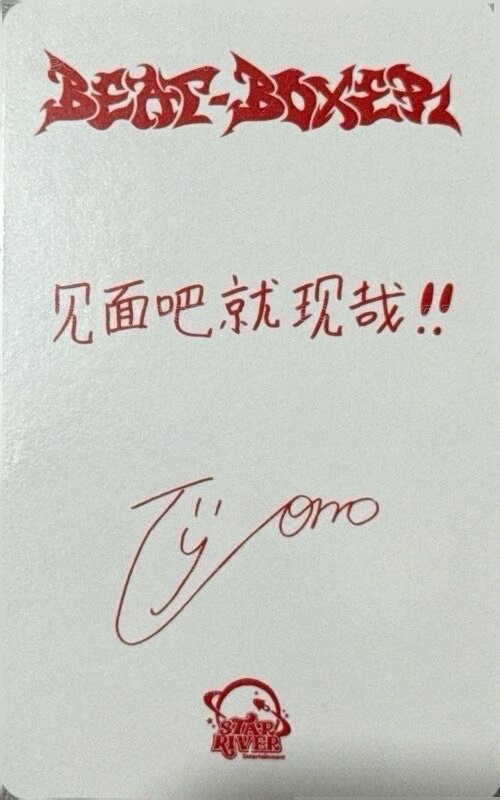 BEAT-BOXER
见面吧就现哉!!
STAR
RIVER
Entertainment